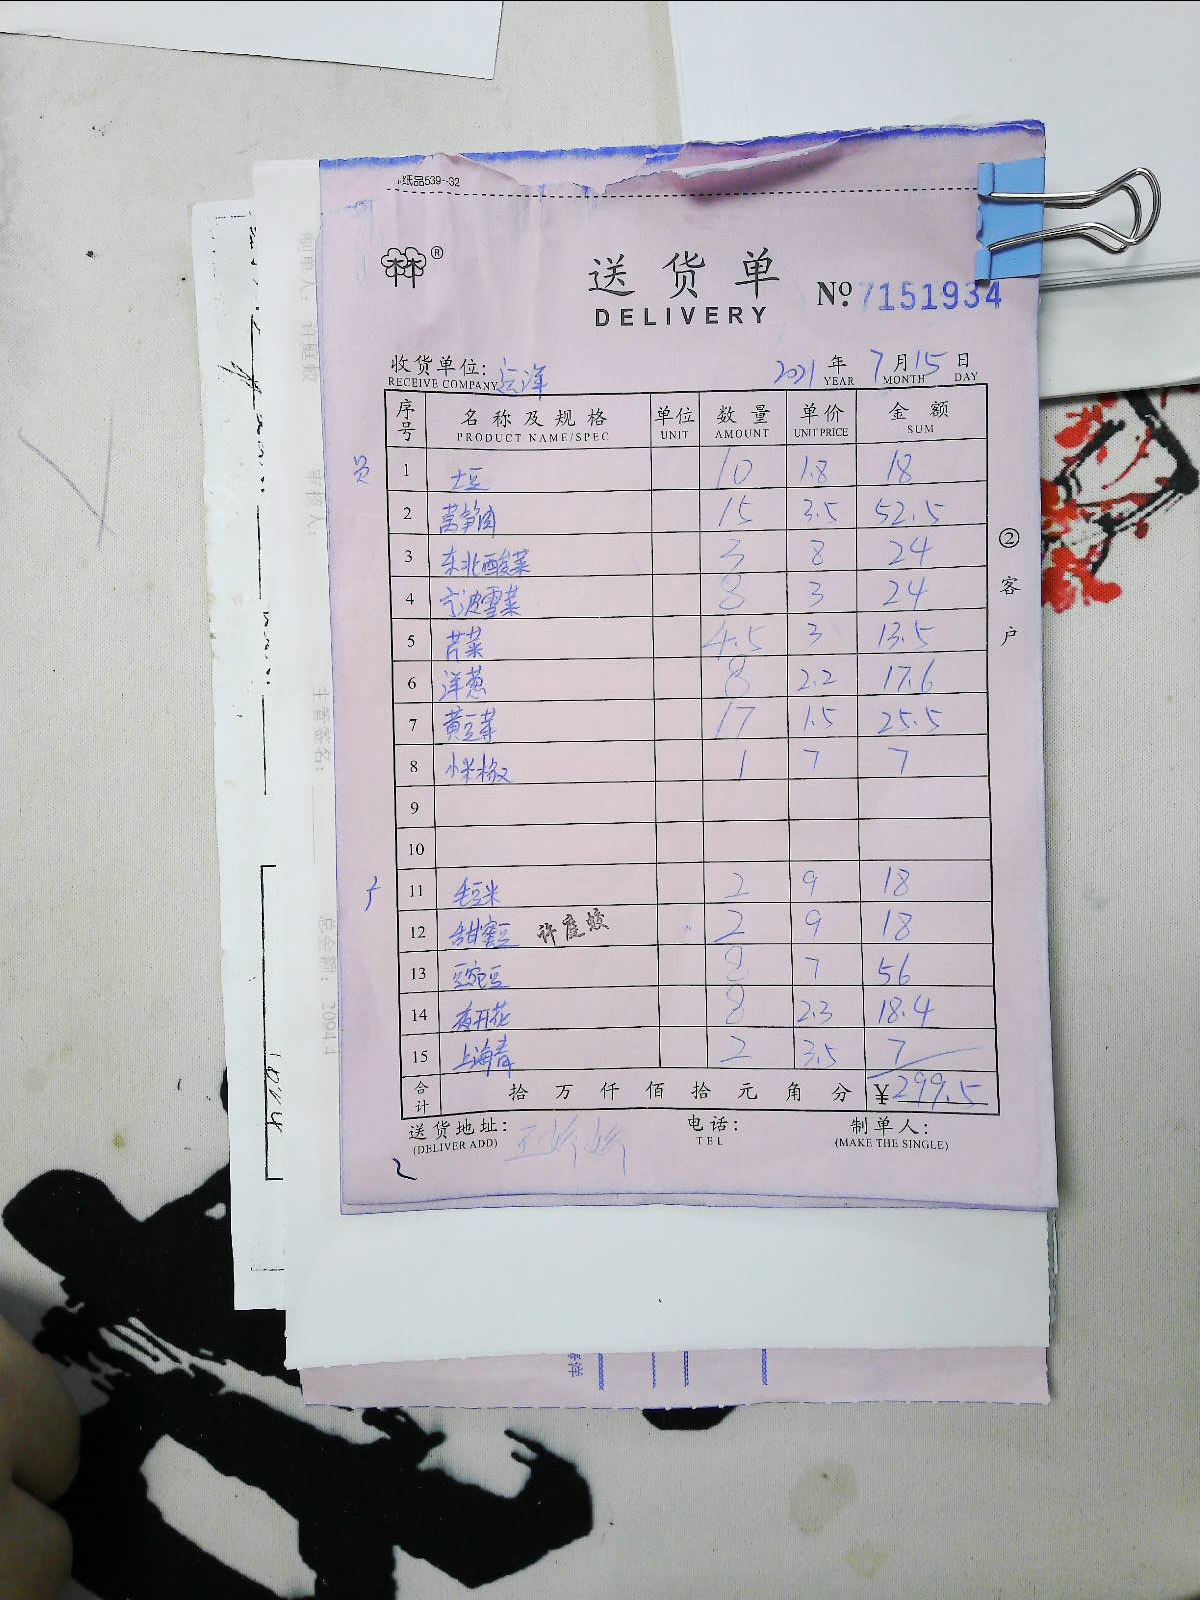 纸品539--32
林®
送货单
DELIVERY
No. 7151934
收货单位: 远洋 2021 年 7 月 15 日
RECEIVE COMPANY YEAR MONTH DAY
序号 名称及规格 单位 数量 单价 金额
PRODUCT NAME/SPEC UNIT AMOUNT UNIT PRICE SUM
员
1 土豆 10 1.8 18
2 莴笋肉 15 3.5 52.5
3 东北酸菜 3 8 24
4 宁波雪菜 8 3 24
5 芹菜 4.5 3 13.5
6 洋葱 8 2.2 17.6
7 黄豆芽 17 1.5 25.5
8 小米椒 1 7 7
9
10
11 毛豆米 2 9 18
12 甜蜜豆 许庭蛟 2 9 18
13 豌豆 8 7 56
14 夜开花 8 2.3 18.4
15 上海青 2 3.5 7
合计 拾万仟佰拾元角分 ¥299.5
送货地址: 王娇娇 电话: 制单人:
(DELIVER ADD) TEL (MAKE THE SINGLE)
②客户
制单人: 许庭蛟
审核人:
主管签名:
总金额: 2094.4